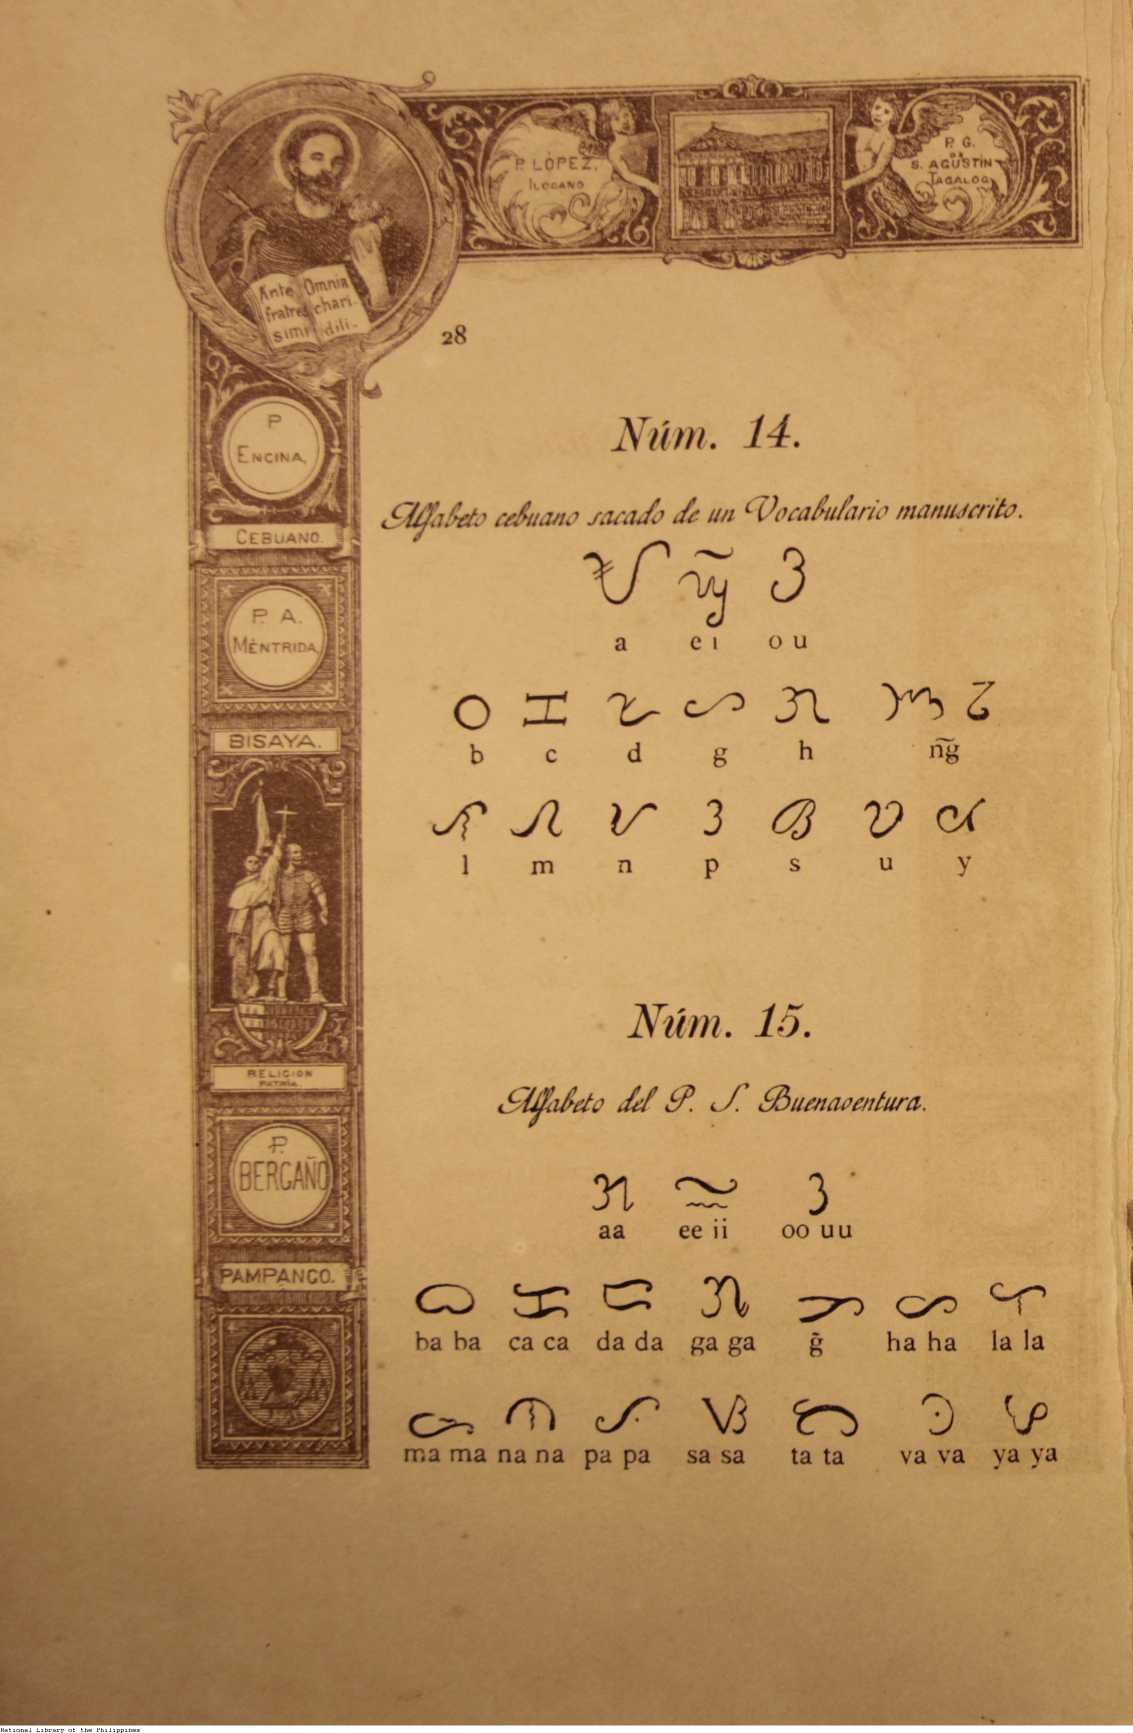 P. LÓPEZ.
ILOCANO
P. G.
DE
S. AGUSTÍN
TAGALOG
Ante Omnia
fratres chari-
simi dili-
28
P
ENCINA.
CEBUANO.
P. A.
MÉNTRIDA
BISAYA.
RELIGION
PATRIA.
P.
BERGAÑO
PAMPANGO.
Núm. 14.
Alfabeto cebuano sacado de un Vocabulario manuscrito.
a e i o u
b c d g h n͠g
l m n p s u y
Núm. 15.
Alfabeto del P. S. Buenaventura.
aa ee ii oo uu
ba ba ca ca da da ga ga g̃ ha ha la la
ma ma na na pa pa sa sa ta ta va va ya ya
National Library of the Philippines